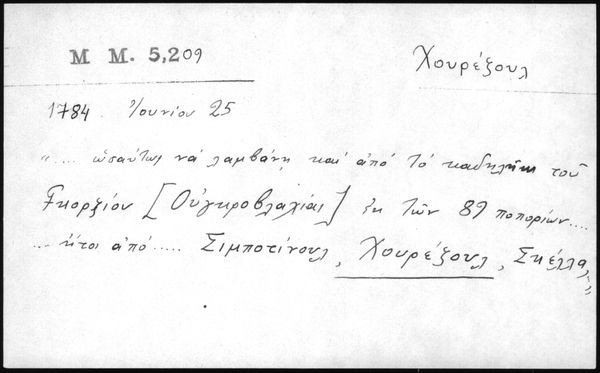 M M. 5,209
Χουρέζουλ
1784 Ἰουνίου 25
".... ὡσαύτως νὰ λαμβάνῃ καὶ ἀπὸ τὸ καδηλίκι τοῦ
Γκορζίου [Οὐγκροβλαχίας] ἐκ τῶν 89 ποπορίων....
... ἤτοι ἀπὸ ..... Σιμποτίνουλ, Χουρέζουλ, Σκέλλα,,"